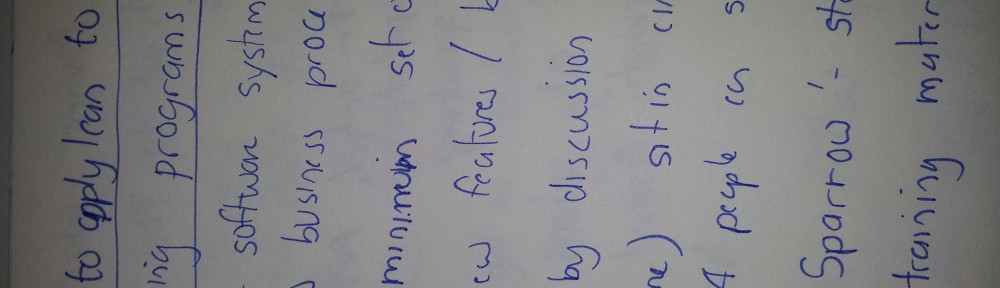 to apply lean to
ing programs
software system
business proce
minimum set o
ew features / b
by discussion
ne) sit in cir
4 people in s
Sparrow'- sto
training mater